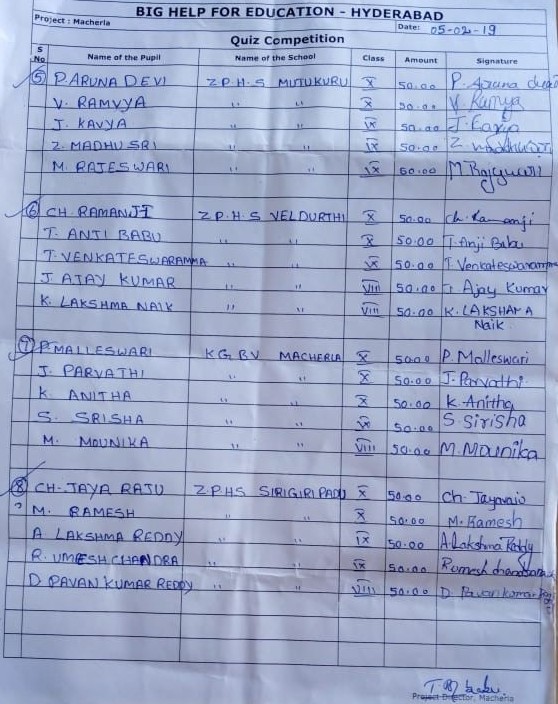 BIG HELP FOR EDUCATION - HYDERABAD
Project : Macherla Date: 05-02-19
Quiz Competition
S No Name of the Pupil Name of the School Class Amount Signature
5 P. ARUNA DEVI Z.P.H.S MUTUKURU X 50.00 P. Aruna devi
V. RAMYA " " X 50.00 V. Ramya
J. KAVYA " " IX 50.00 J. Kavya
Z. MADHU SRI " " IX 50.00 Z. Madhusri
M. RAJESWARI " " IX 50.00 M Rajeswari
6 CH. RAMANJI Z.P.H.S VELDURTHI X 50.00 Ch. Ramanji
T. ANJI BABU " " X 50.00 T. Anji Babu
T. VENKATESWARAMMA " " IX 50.00 T. Venkateswaramma
J AJAY KUMAR " " VIII 50.00 J. Ajay Kumar
K. LAKSHMA NAIK " " VIII 50.00 K. LAKSHMA
Naik
7 P. MALLESWARI KGBV MACHERLA X 50.00 P. Malleswari
J. PARVATHI " " X 50.00 J. Parvathi
K. ANITHA " " X 50.00 K. Anitha
S. SRISHA " " IX 50.00 S. Sirisha
M. MOUNIKA " " VIII 50.00 M. Mounika
8 CH. JAYA RAJU Z.P.H.S SIRIGIRIPADU X 50.00 Ch. Jayaraju
? M. RAMESH " " X 50.00 M. Ramesh
A LAKSHMA REDDY " " IX 50.00 A Lakshma Reddy
R. UMESH CHANDRA " " IX 50.00 R umesh chandra
D PAVAN KUMAR REDDY " " VIII 50.00 D. Pavan kumar
Project Director, Macherla